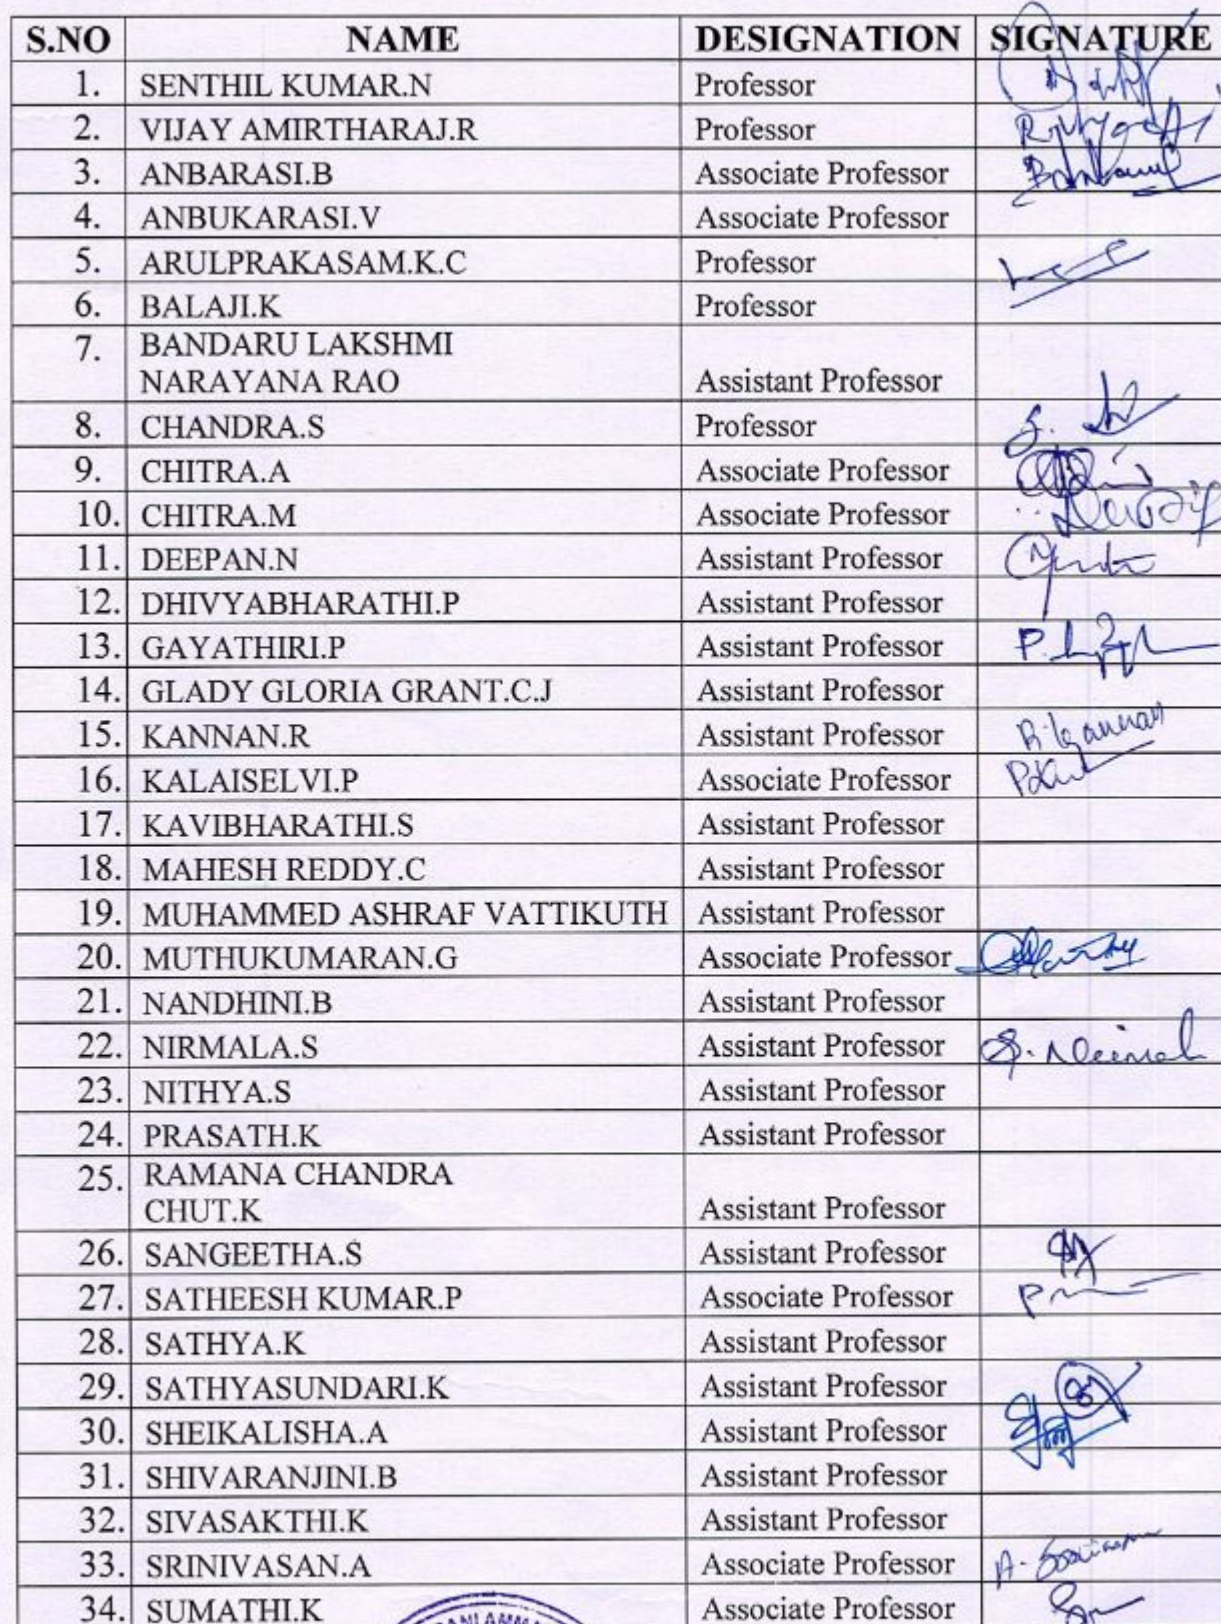 S.NO NAME DESIGNATION SIGNATURE
1. SENTHIL KUMAR.N Professor
2. VIJAY AMIRTHARAJ.R Professor
3. ANBARASI.B Associate Professor
4. ANBUKARASI.V Associate Professor
5. ARULPRAKASAM.K.C Professor
6. BALAJI.K Professor
7. BANDARU LAKSHMI
NARAYANA RAO Assistant Professor
8. CHANDRA.S Professor
9. CHITRA.A Associate Professor
10. CHITRA.M Associate Professor
11. DEEPAN.N Assistant Professor
12. DHIVYABHARATHI.P Assistant Professor
13. GAYATHIRI.P Assistant Professor
14. GLADY GLORIA GRANT.C.J Assistant Professor
15. KANNAN.R Assistant Professor R. Kannan
16. KALAISELVI.P Associate Professor
17. KAVIBHARATHI.S Assistant Professor
18. MAHESH REDDY.C Assistant Professor
19. MUHAMMED ASHRAF VATTIKUTH Assistant Professor
20. MUTHUKUMARAN.G Associate Professor
21. NANDHINI.B Assistant Professor
22. NIRMALA.S Assistant Professor
23. NITHYA.S Assistant Professor
24. PRASATH.K Assistant Professor
25. RAMANA CHANDRA
CHUT.K Assistant Professor
26. SANGEETHA.S Assistant Professor
27. SATHEESH KUMAR.P Associate Professor
28. SATHYA.K Assistant Professor
29. SATHYASUNDARI.K Assistant Professor
30. SHEIKALISHA.A Assistant Professor
31. SHIVARANJINI.B Assistant Professor
32. SIVASAKTHI.K Assistant Professor
33. SRINIVASAN.A Associate Professor
34. SUMATHI.K Associate Professor